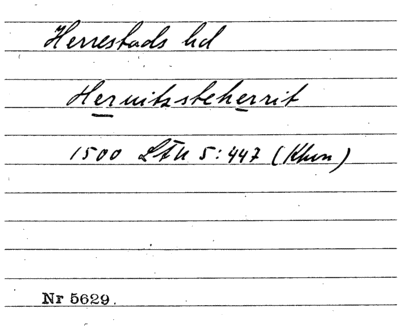 Herrestads hd
Heruitzsteherrit
1500 LÄU 5:447 (Khvn)
Nr 5629.